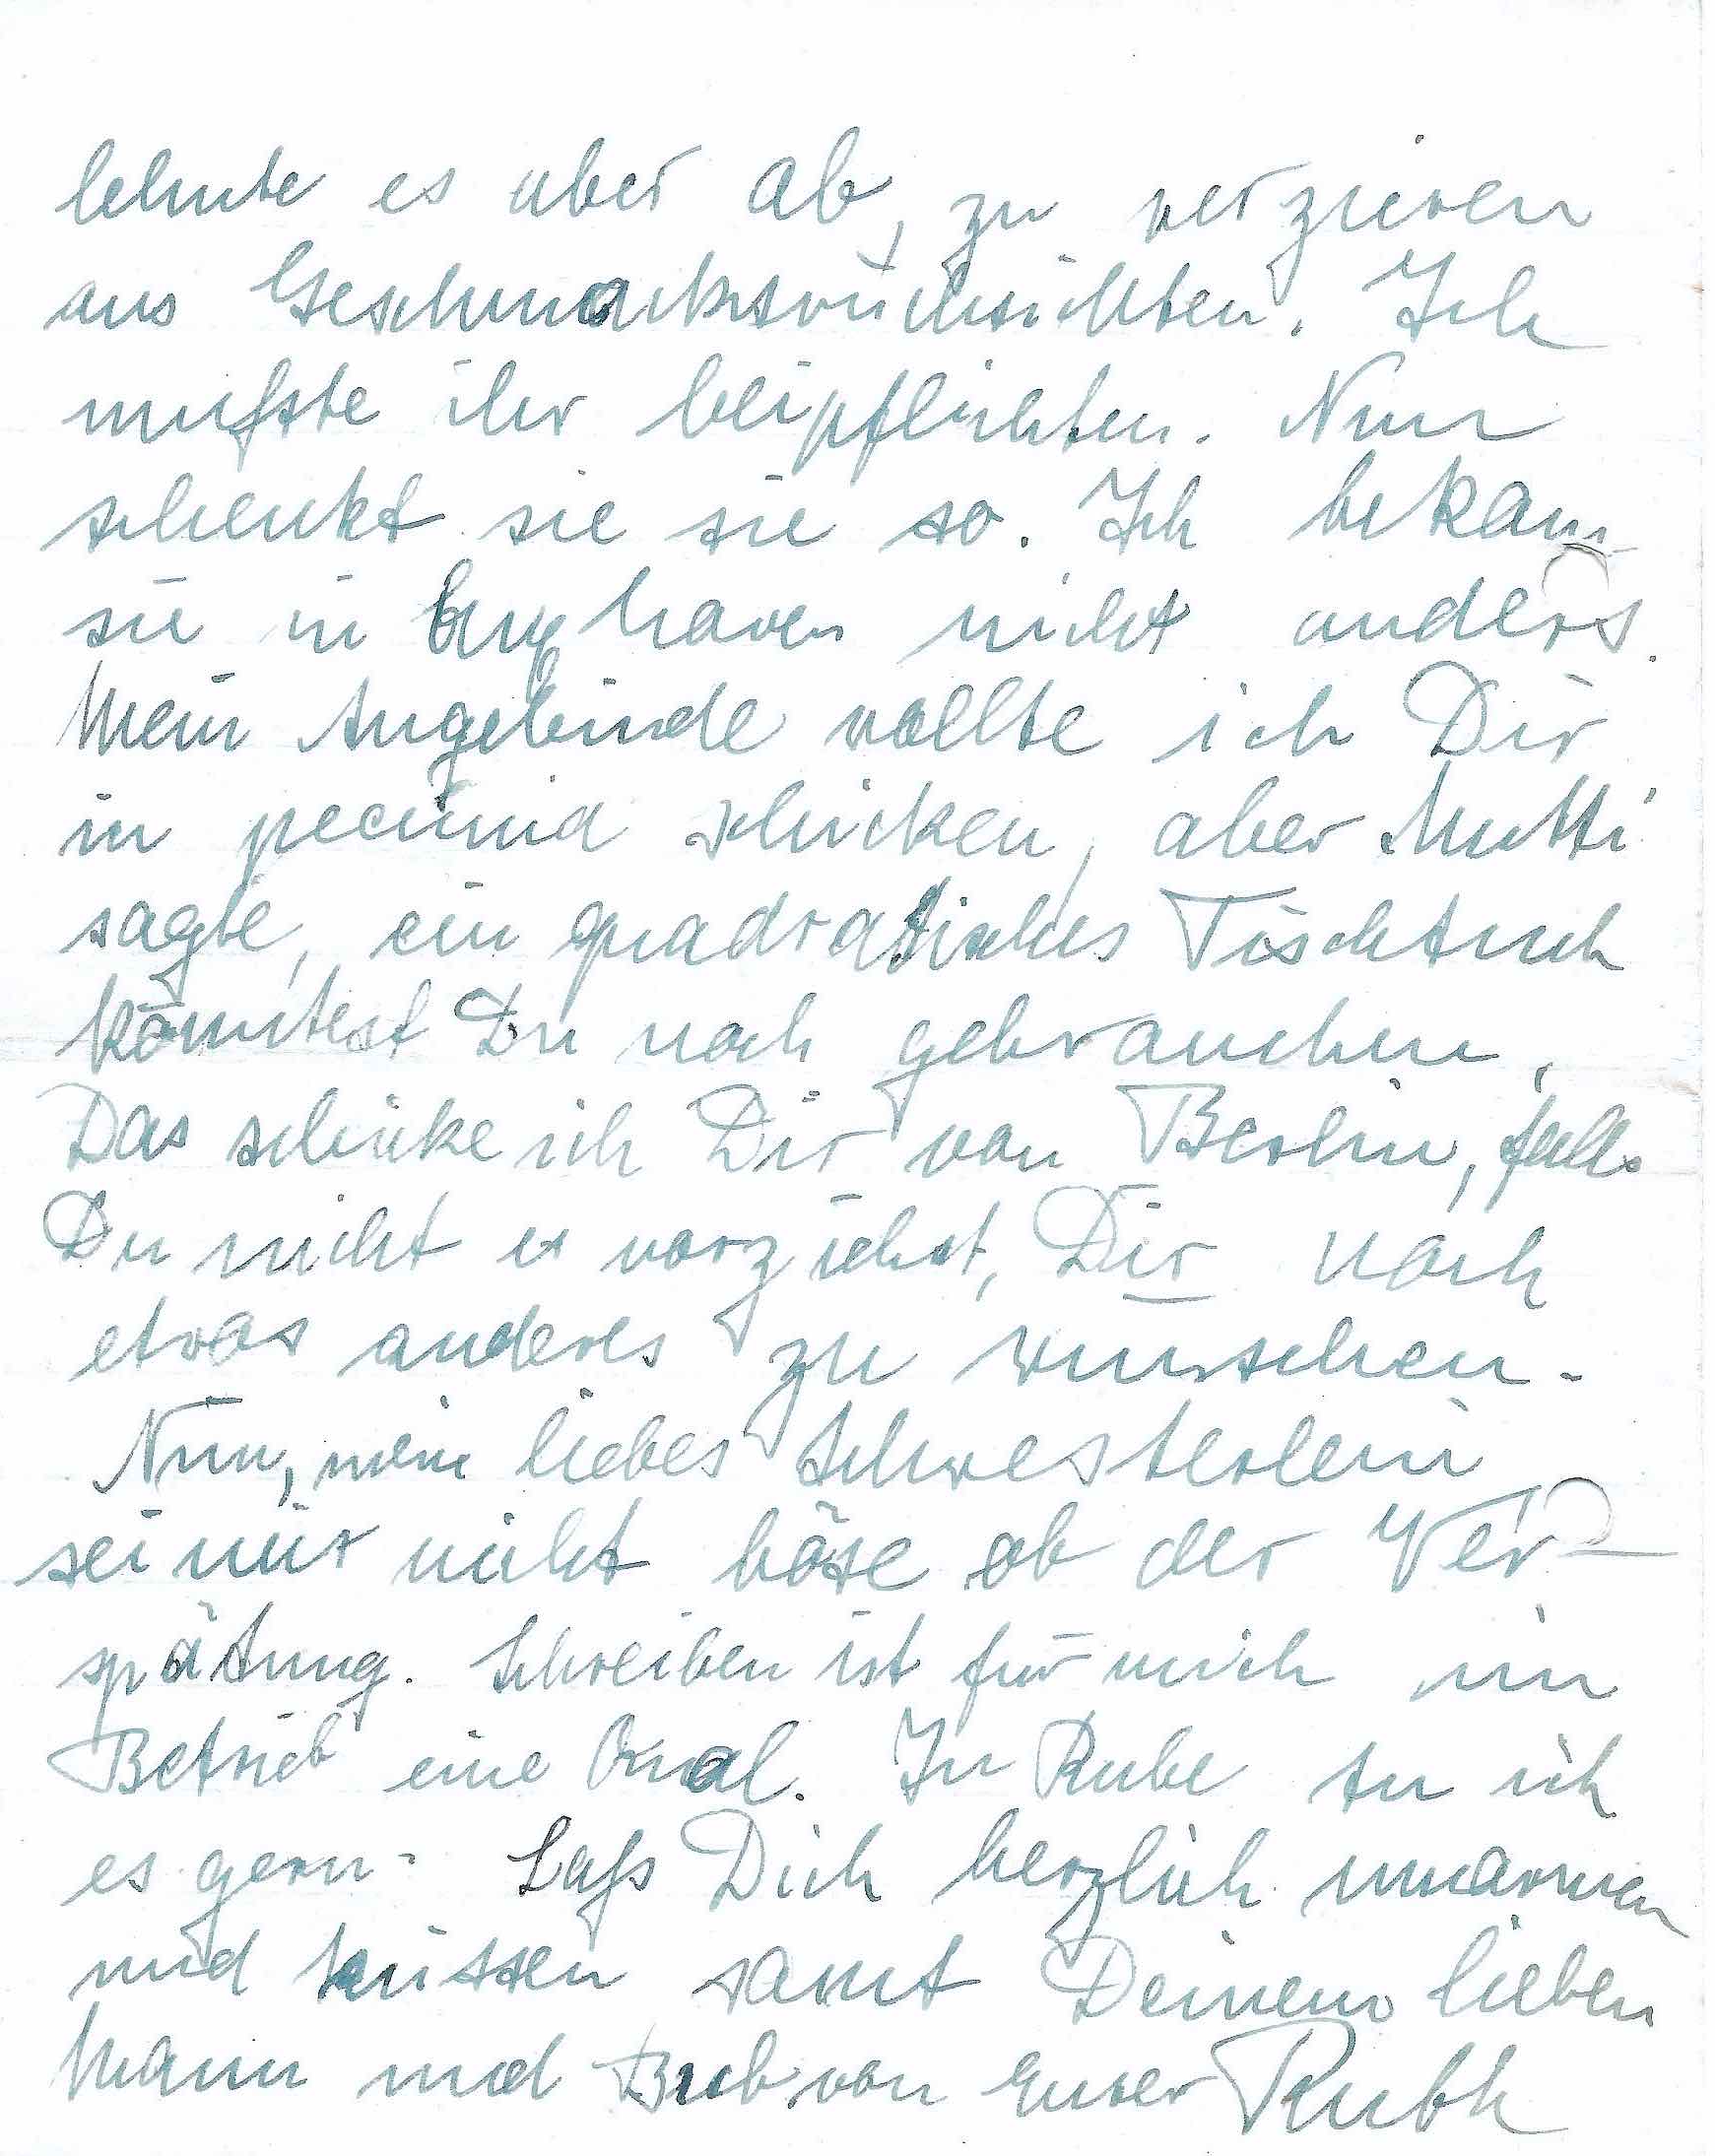 lehnte es aber ab, zu verzieren
aus Geschmacksrücksichten. Ich
mußte ihr beipflichten. Nun
schenkt sie sie so. Ich bekam
sie in Cuxhaven nicht anders.
Mein Angebinde wollte ich Dir
in pecunia schicken, aber Mutti
sagte, ein quadratisches Tischtuch
könntest Du noch gebrauchen,
Das schicke ich Dir von Berlin, falls
Du nicht es vorziehst, Dir noch
etwas anderes zu wünschen.
Nun, mein liebes Schwesterlein
sei mir nicht böse ob der Ver-
spätung. Schreiben ist für mich im
Betrieb eine Qual. In Ruhe tu ich
es gern. Laß Dich herzlich umarmen
und küssen samt Deinem lieben
Mann und Bub von Eurer Ruth